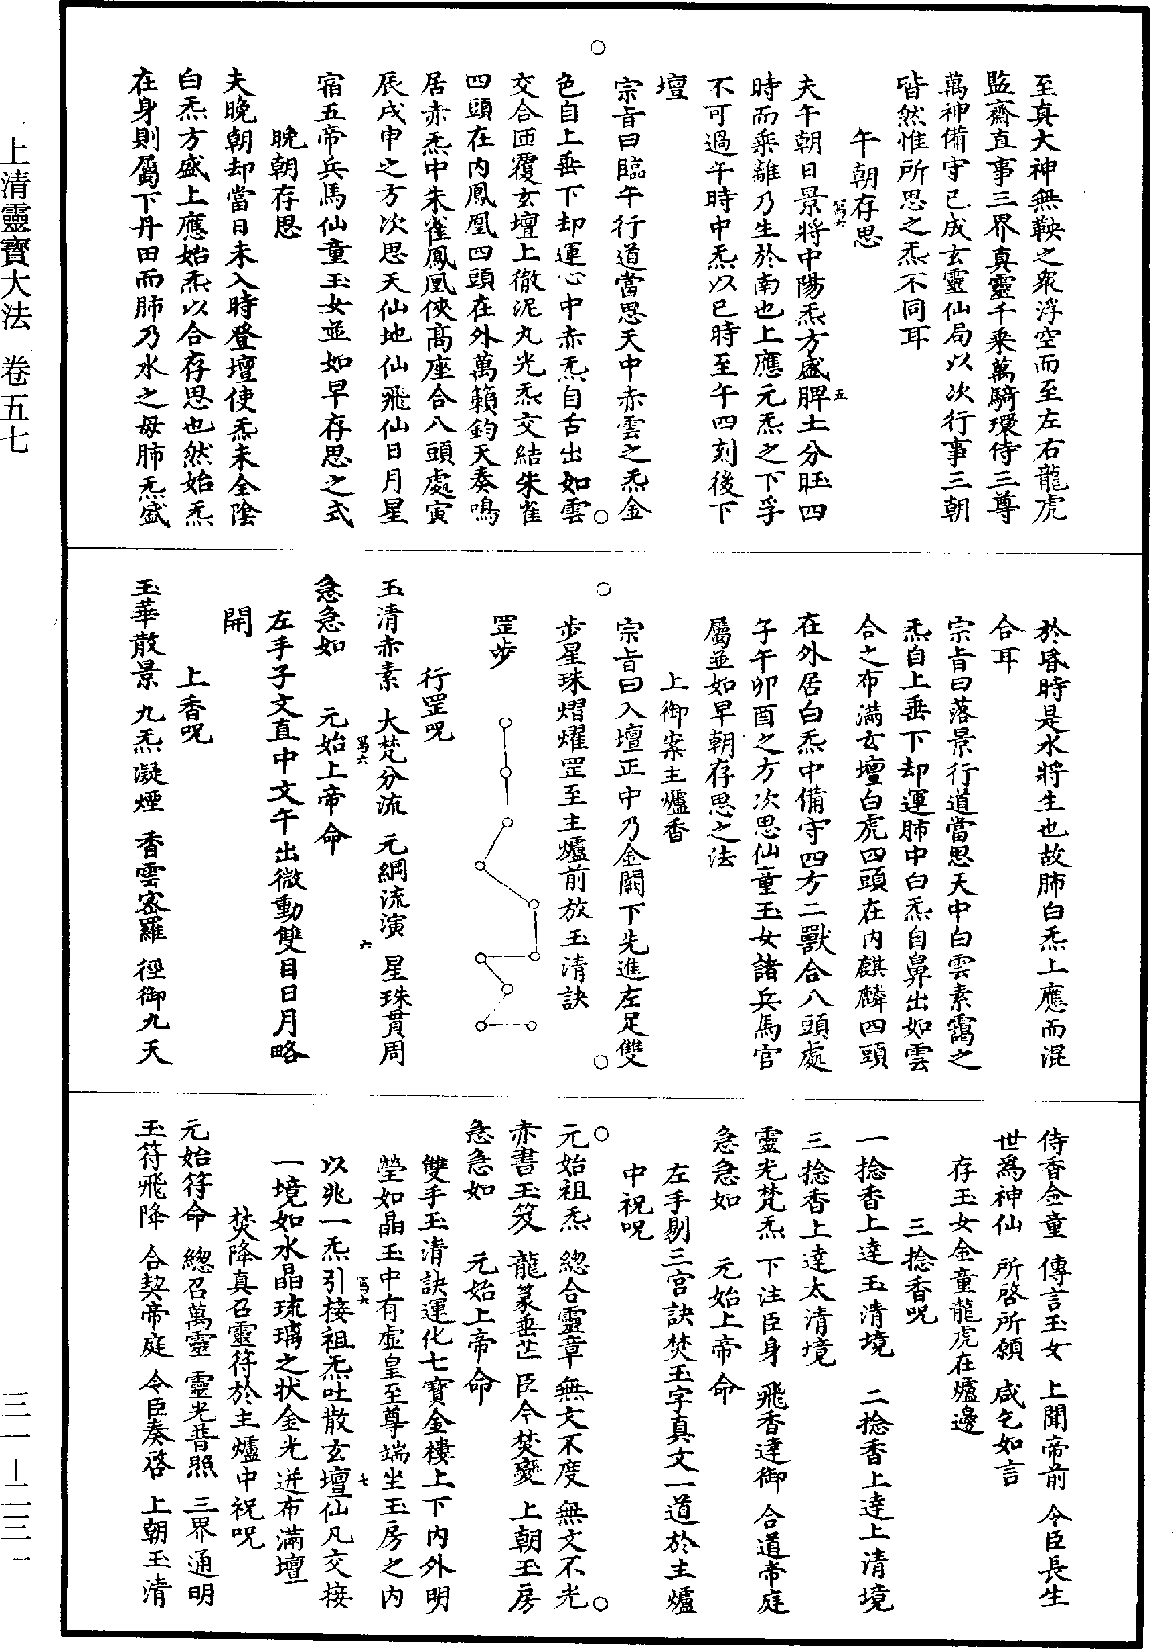 至真大神無鞅之衆浮空而至左右龍虎
監齋直事三界真靈千乘萬騎環侍三尊
萬神備守已成玄靈仙局以次行事三朝
皆然惟所思之炁不同耳
午朝存思
夫午朝日景將中陽炁方盛脾土分旺四
時而乘離乃生於南也上應元炁之下孚
不可過午時中炁以巳時至午四刻後下
壇
宗旨曰臨午行道當思天中赤雲之炁金
色自上垂下却運心中赤炁自舌出如雲
交合匝覆玄壇上徹泥丸光炁交結朱雀
四頭在内鳳凰四頭在外萬籟鈞天奏鳴
居赤炁中朱雀鳳凰俠高座合八頭處寅
辰戌申之方次思天仙地仙飛仙日月星
宿五帝兵馬仙童玉女並如早存思之式
晚朝存思
夫晚朝却當日未入時登壇使炁未全陰
白炁方盛上應始炁以合存思也然始炁
在身則屬下丹田而肺乃水之母肺炁盛
於昏時是水將生也故肺白炁上應而混
合耳
宗旨曰落景行道當思天中白雲素靄之
炁自上垂下却運肺中白炁自鼻出如雲
合之布滿玄壇白虎四頭在内麒麟四頭
在外居白炁中備守四方二獸合八頭處
子午卯酉之方次思仙童玉女諸兵馬官
屬並如早朝存思之法
上御案主爐香
宗旨曰入壇正中乃金闕下先進左足雙
步星珠熠燿罡至主爐前放玉清訣
罡步
行罡呪
玉清赤素 大梵分流 元綱流演 星珠貫周
急急如 元始上帝命
左手子文直中文午出微動雙目日月略
開
上香呪
玉華散景 九炁凝煙 香雲密羅 徑御九天
侍香金童 傳言玉女 上聞帝前 令臣長生
世爲神仙 所啓所願 咸乞如言
存玉女金童龍虎在爐邊
三捻香呪
一捻香上達玉清境 二捻香上達上清境
三捻香上達太清境
靈光梵炁 下注臣身 飛香達御 合道帝庭
急急如 元始上帝命
左手剔三宫訣焚玉字真文一道於主爐
中祝呪
元始祖炁 總合靈章 無文不度 無文不光
赤書玉笈 龍篆垂芒 臣今焚變 上朝玉房
急急如 元始上帝命
雙手玉清訣運化七寳金樓上下内外明
瑩如晶玉中有虚皇至尊端坐玉房之内
以兆一炁引接祖炁吐散玄壇仙凡交接
一境如水晶琉璃之狀金光迸布滿壇
焚降真召靈符於主爐中祝呪
元始符命 總召萬靈 靈光普照 三界通明
玉符飛降 合契帝庭 令臣奏啓 上朝玉清
上清靈寳大法 卷五七
三一—二三一